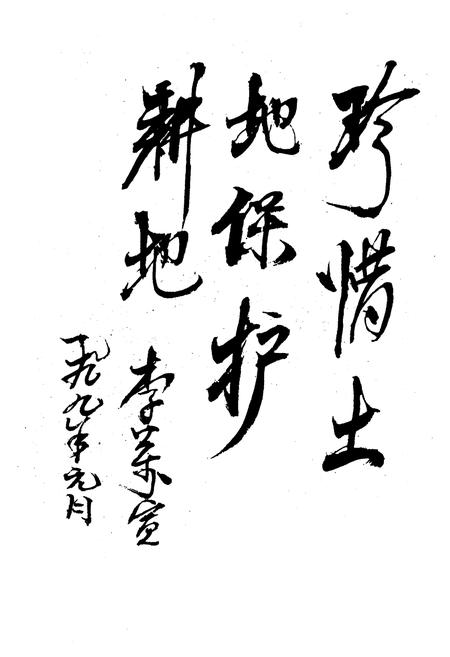 珍惜土
地保护
耕地
李宣
一九九年元月